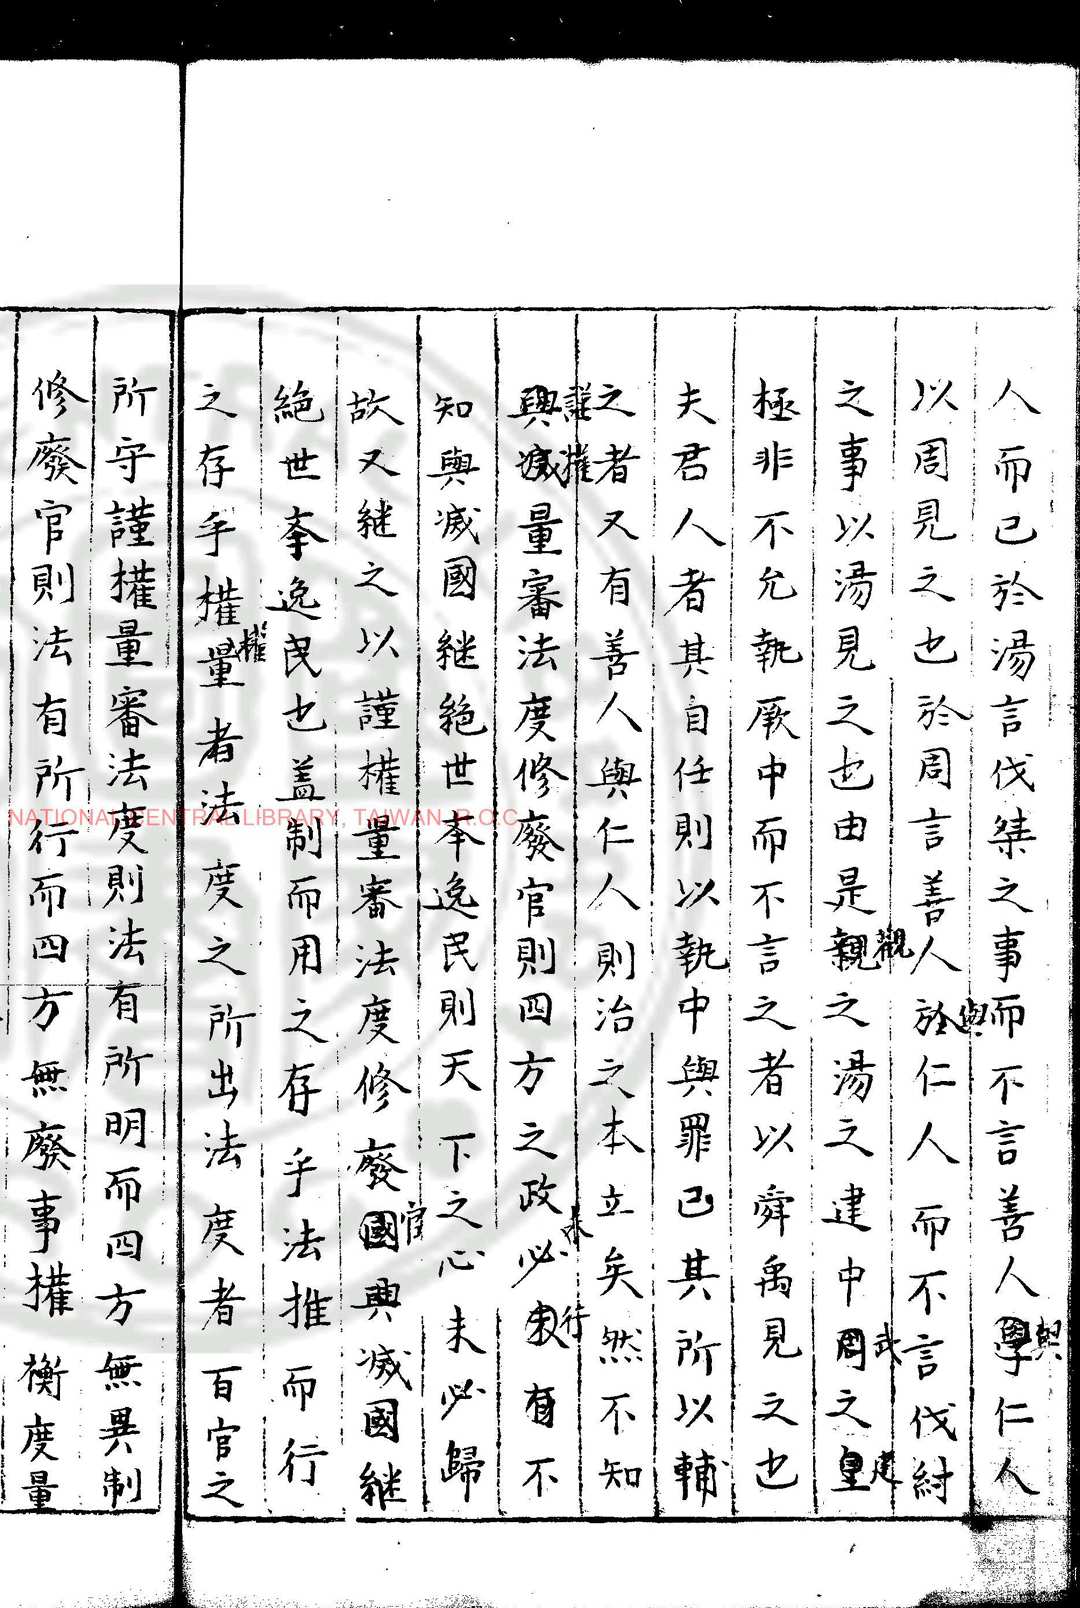 人而已於湯言伐桀之事而不言善人學仁人
與
以周見之也於周言善人於仁人而不言伐紂
與
之事以湯見之也由是親之湯之建中周之皇
觀
武
建
極非不允執厥中而不言之者以舜禹見之也
夫君人者其自任則以執中與罪已其所以輔
之者又有善人與仁人則治之本立矣然不知
謹權
興滅量審法度修廢官則四方之政必有不
未
行
知與滅國継絶世夲逸民則天下之心未必歸
故又継之以謹權量審法度修廢國興滅國継
官
絶世夲逸民也盖制而用之存乎法推而行
之存乎權量者法度之所出法度者百官之
權
所守謹權量審法度則法有所明而四方無異制
修廢官則法有所行而四方無廢事權衡度量
NATIONAL CENTRAL LIBRARY, TAIWAN, R.O.C